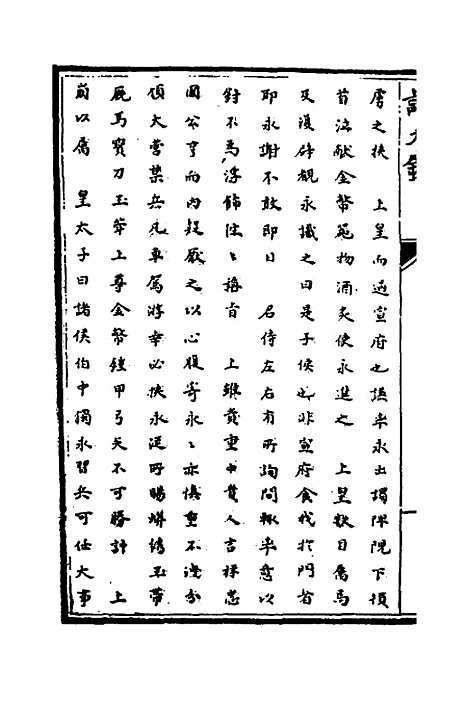 虜之挾　上皇而過宣府也謹率永出謁陴陧下頓
首泣獻金幣苑物酒炙使永進之　上皇歎曰舊馬
及復辟覩永識之曰是子侯也非宣府食我於門者
耶永謝不敢即日　名侍左右有所詢問輒率意以
對不為浮飾往往稱旨　上雖貴重中貴人吉祥忠
國公亨而內疑厭之以心腹寄永永亦慎重不洩分
領大營禁兵凡車駕游幸必挾永從所賜蟒綉玉帶
厩馬寶刀玉萃上尊金幣鎧甲弓矢不可勝計　上
前以屬　皇太子曰諸侯伯中獨永習兵可任大事